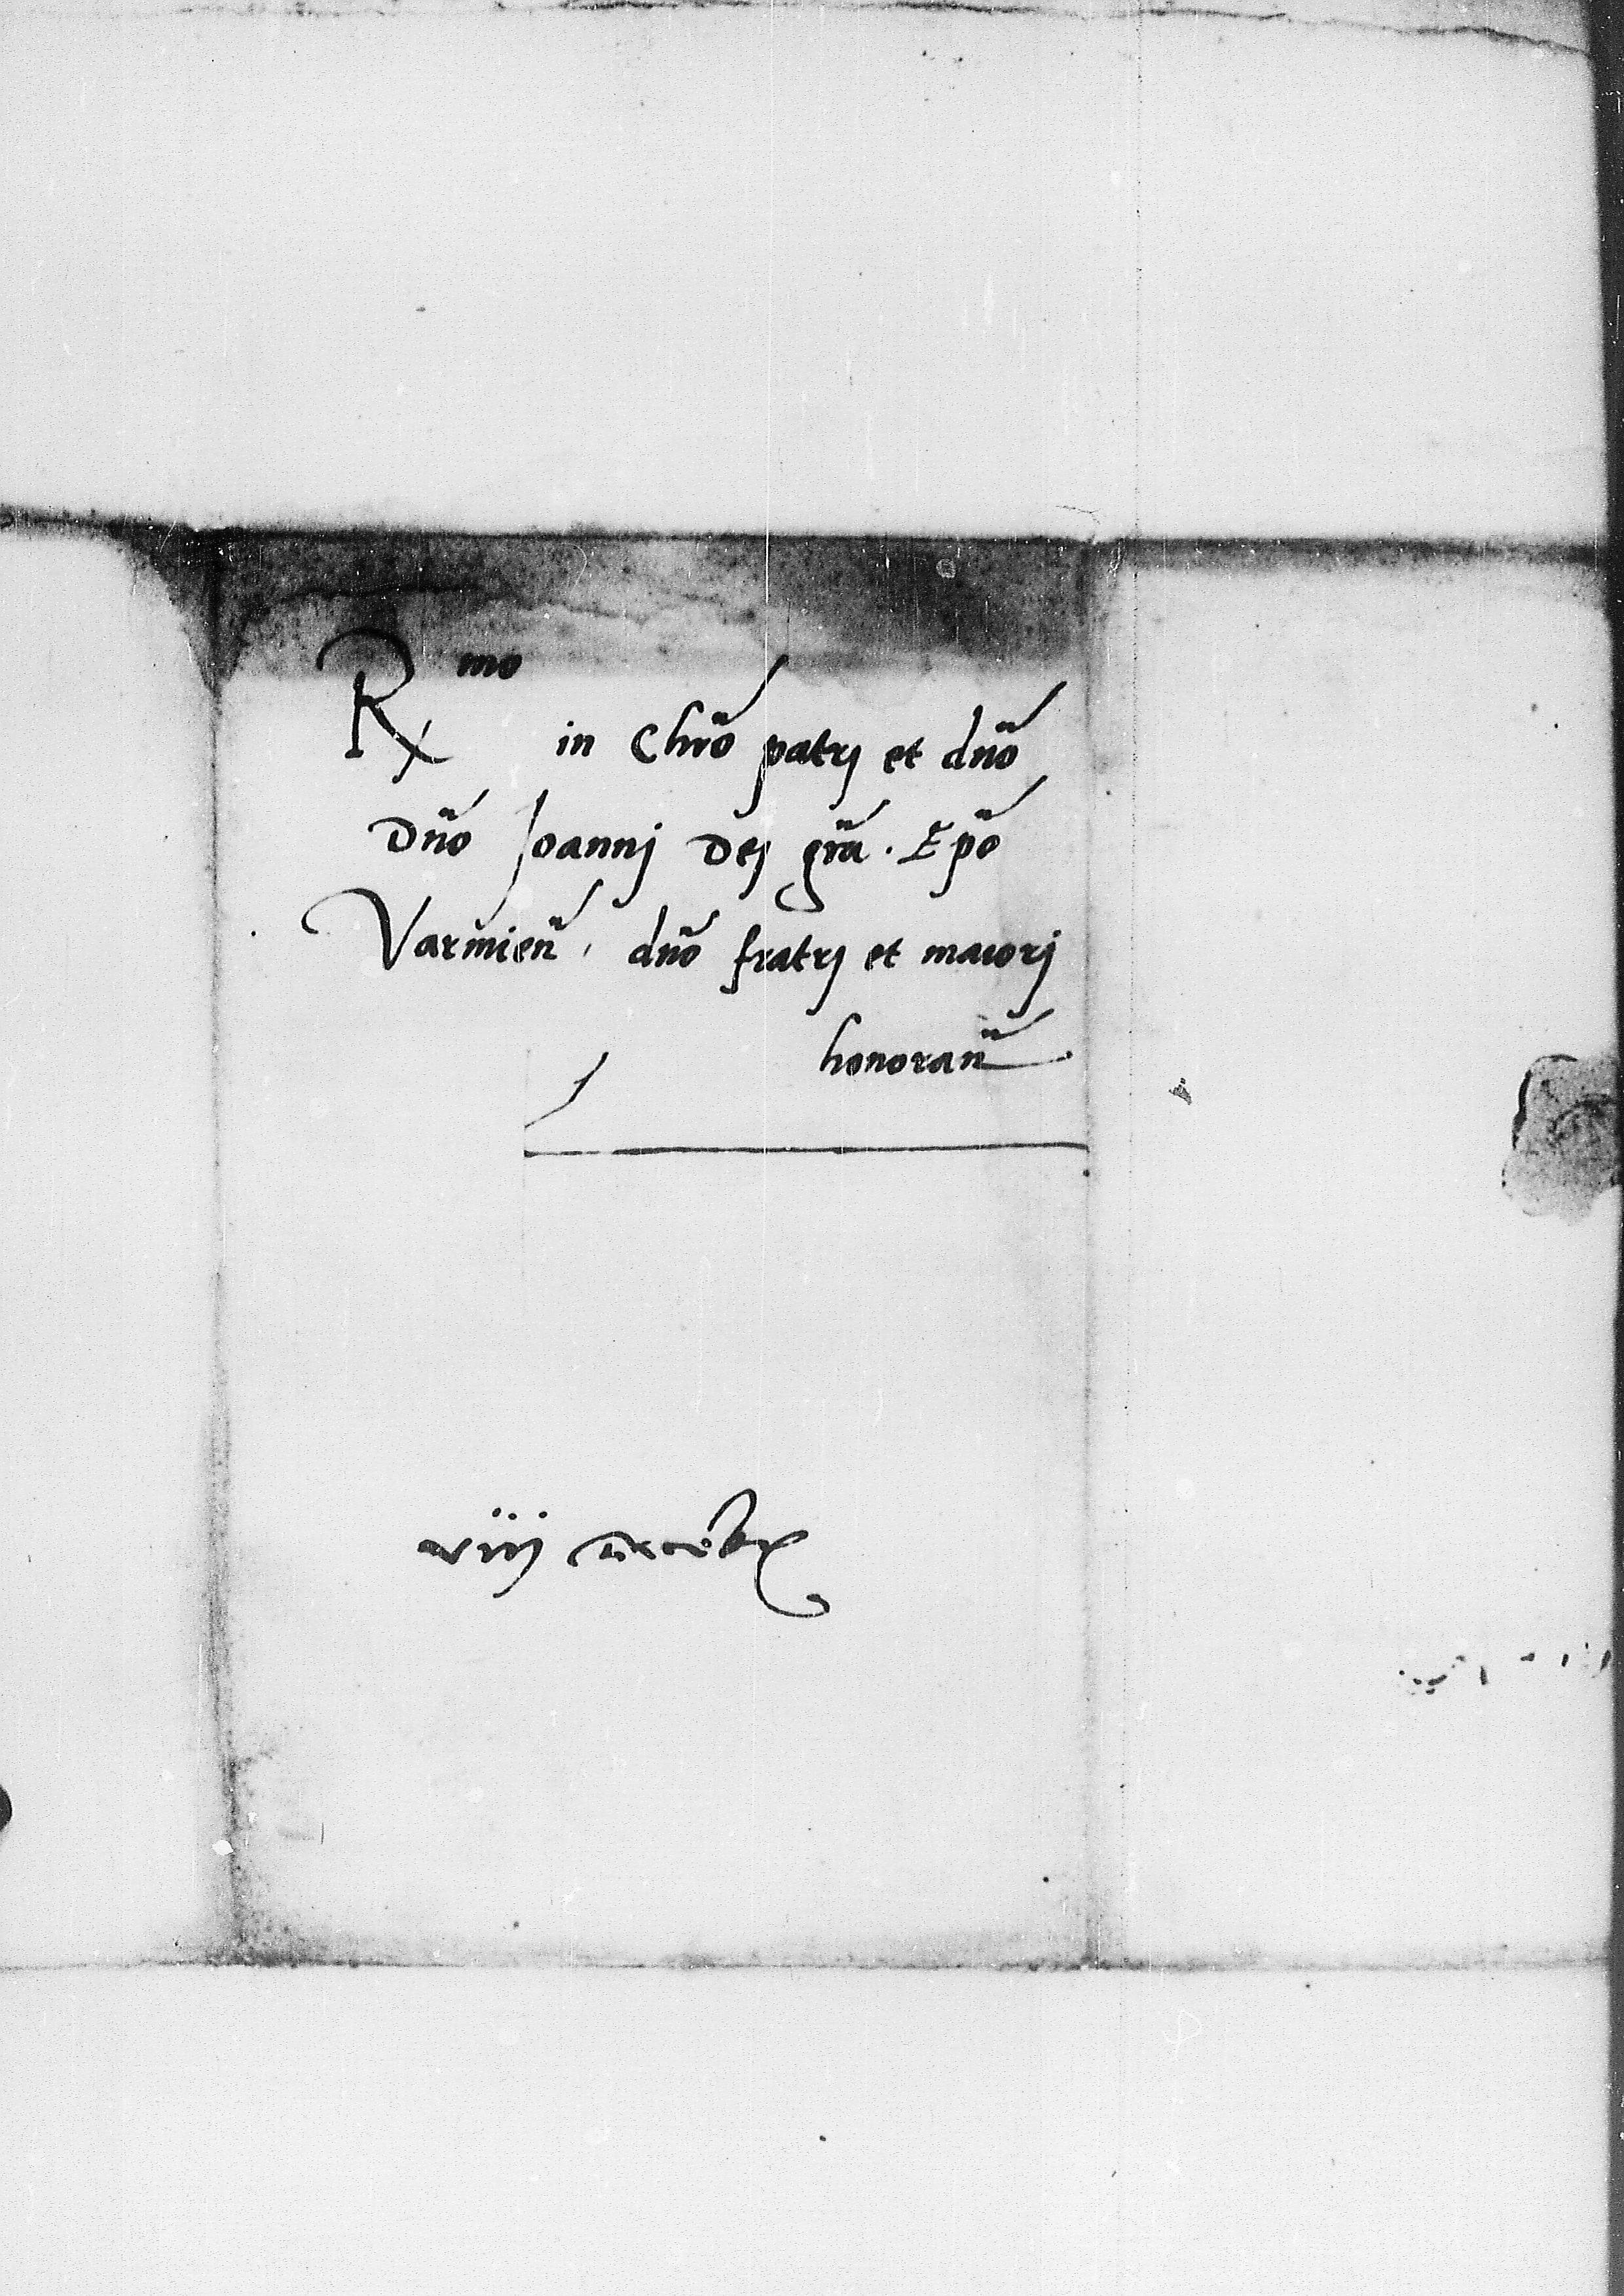 R mo in Chr̃o patrj et dño
Dño Joannj Dej gr̃a. Ep̃o
Varmien̄, dño fratrj et maiorj
honoran̄.
viij